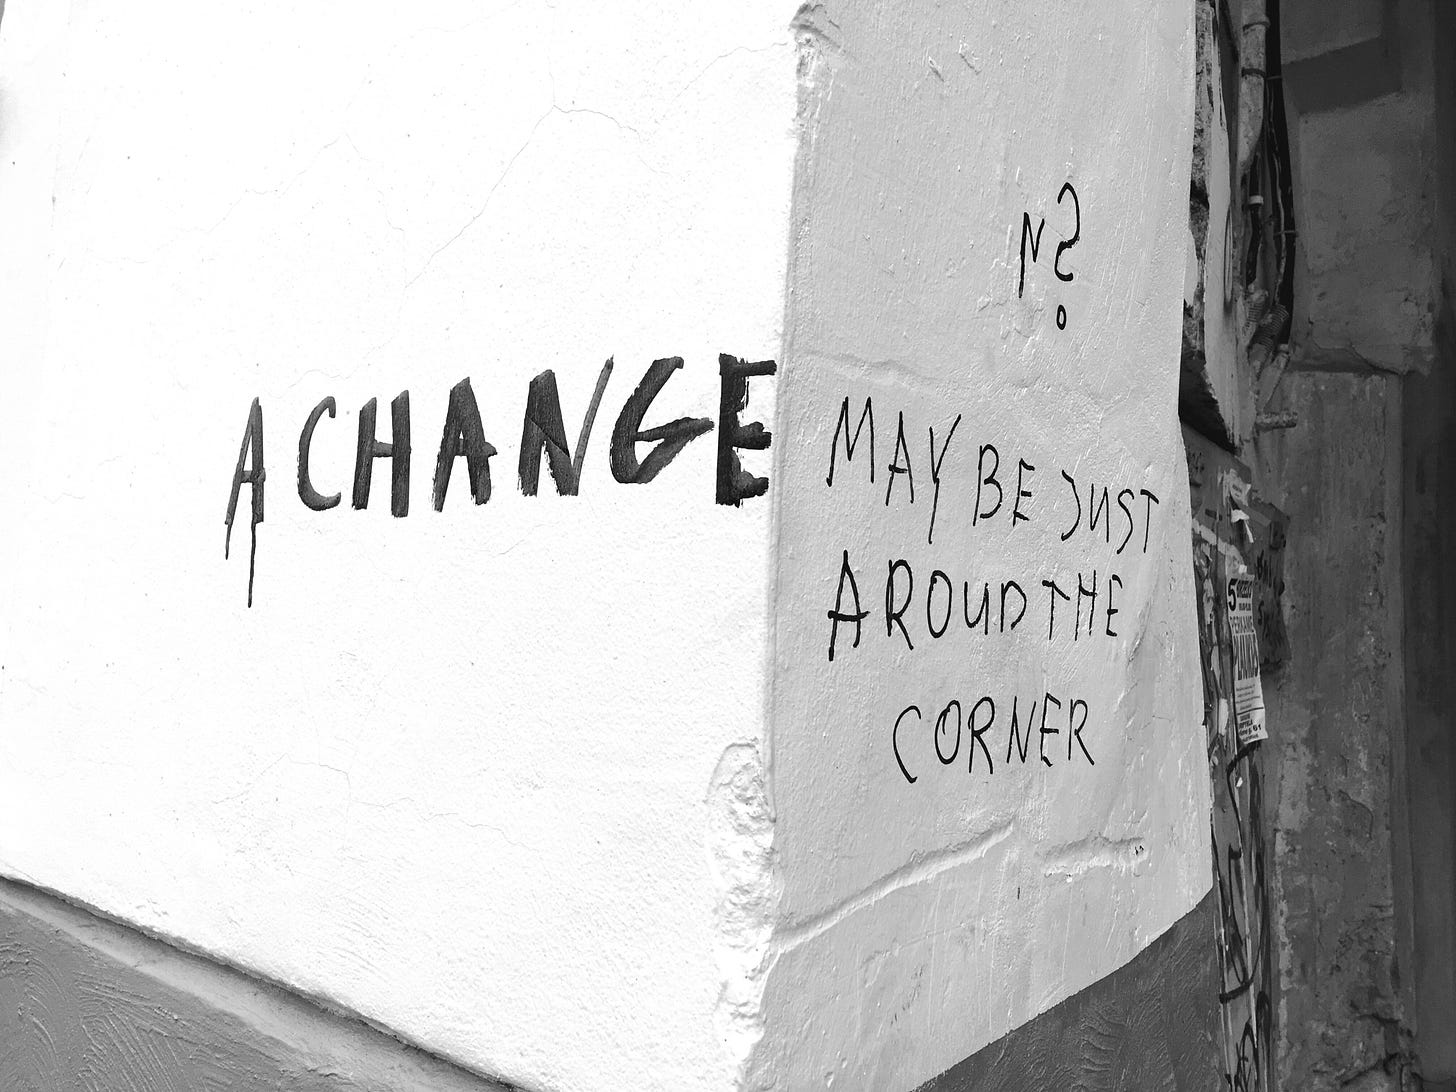 A CHANGE
N?
MAY BE JUST
AROUD THE
CORNER
5
61